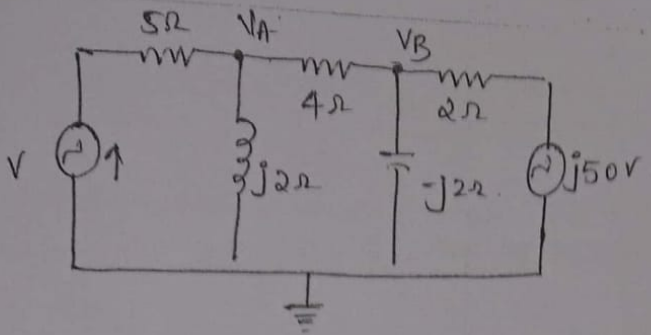 5Ω
VA
VB
4Ω
2Ω
V
j2Ω
-j2Ω
j50V